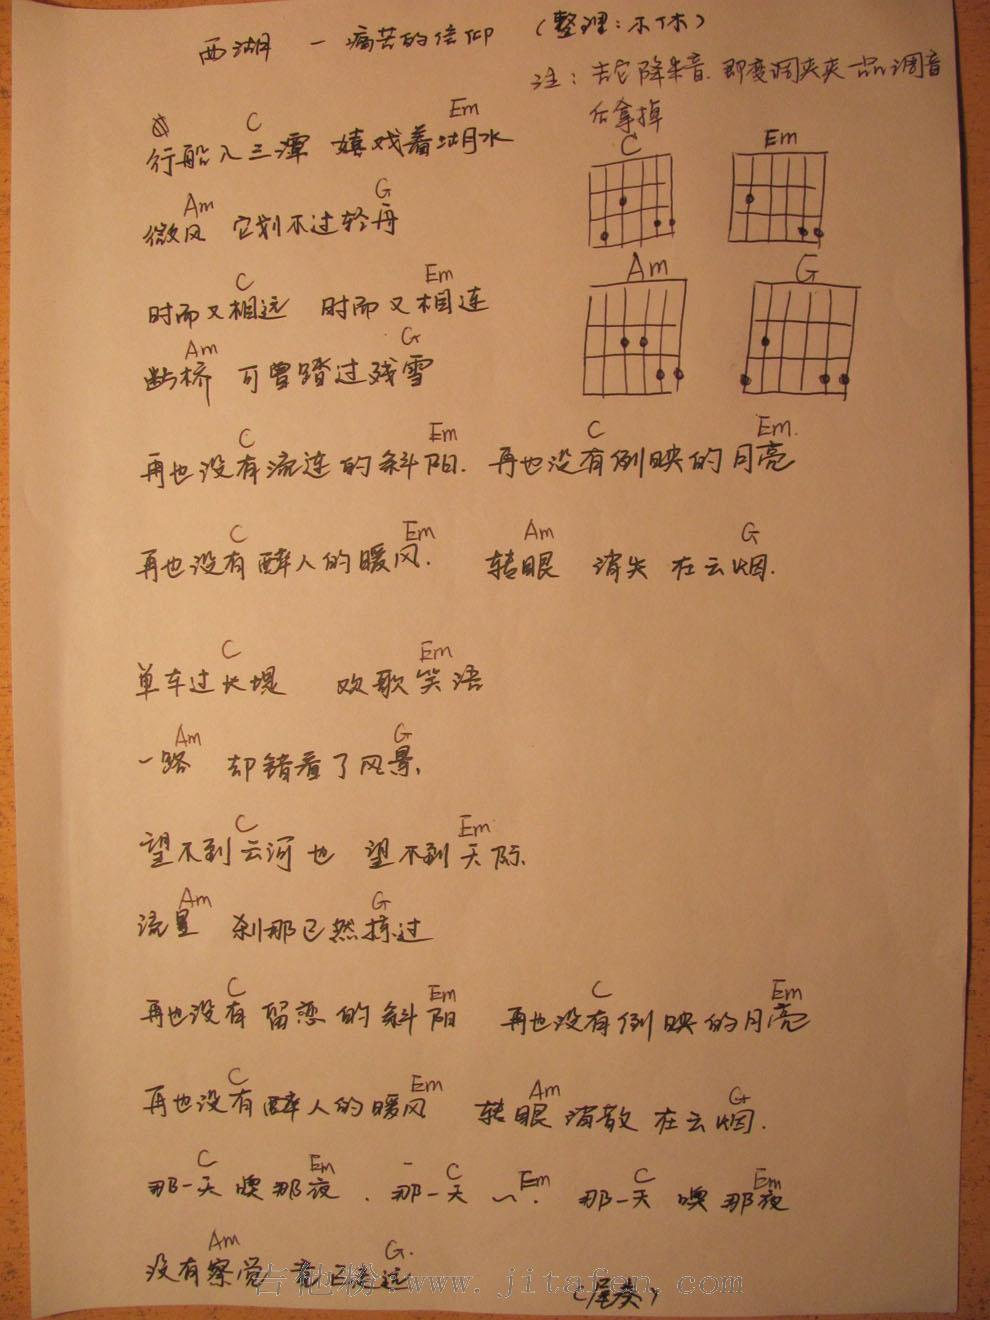 西湖 — 痛苦的信仰 (整理:不休)
注:吉它降半音.即变调夹夹一品调音
后拿掉
C Em
行船入三潭 嬉戏着湖水
C Em
Am G
微风 它划不过轻舟
Am G
C Em
时而又相远 时而又相连
Am G
断桥 可曾踏过残雪
C Em C Em.
再也没有流连的斜阳. 再也没有倒映的月亮
C Em Am G
再也没有醉人的暖风. 转眼 消失在云烟.
C Em
单车过长堤 欢歌笑语
Am G
一路 却错看了风景.
C Em
望不到云河也 望不到天际.
Am G
流星 刹那已然掠过
C Em C Em
再也没有留恋的斜阳 再也没有倒映的月亮
C Em Am G
再也没有醉人的暖风 转眼消散在云烟.
C Em C Em C Em
那一天噢那夜. 那一天 ~. 那一天 噢那夜
Am G.
没有察觉 竟已走远
吉他粉 www.jitafen.com
(尾奏)